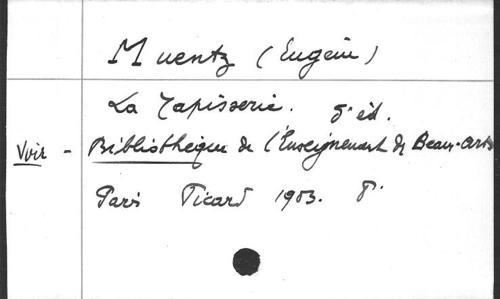 Muentz (Eugène)
La Tapisserie. 5e éd.
Voir - Bibliothèque de l'Enseignement des Beaux-Arts
Paris Picard 1903. 8°